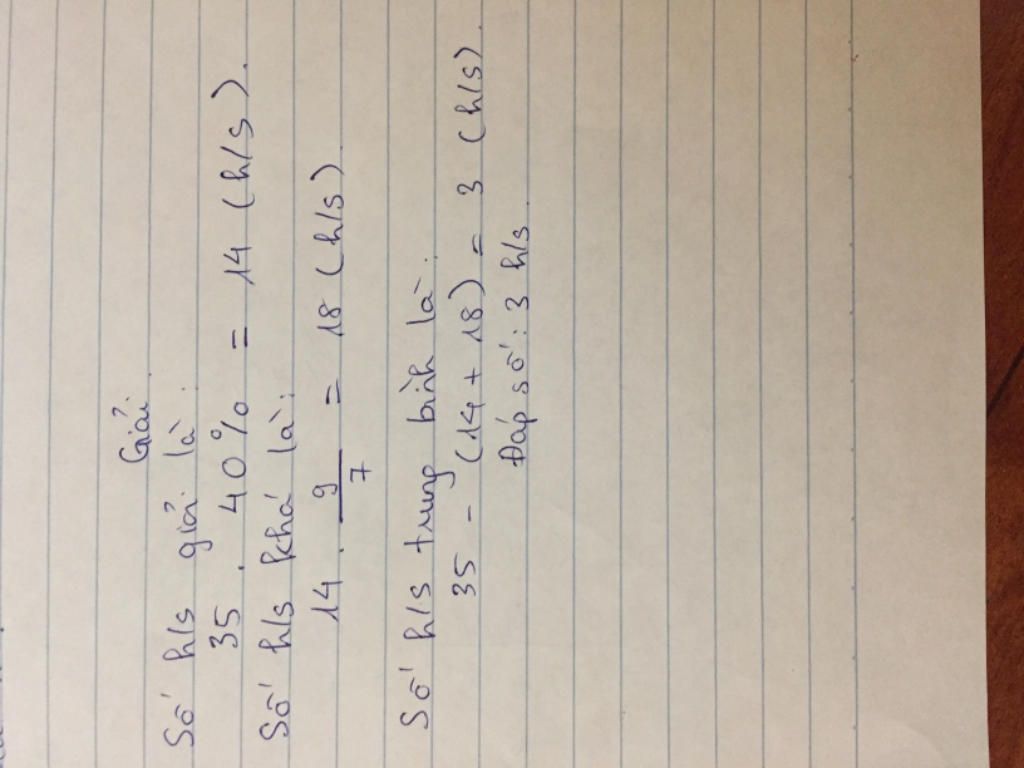 Giải
Số h/s giỏi là:
35 . 40% = 14 (h/s).
Số h/s khá là:
14 . 9/7 = 18 (h/s)
Số h/s trung bình là:
35 - (14 + 18) = 3 (h/s).
Đáp số: 3 h/s.